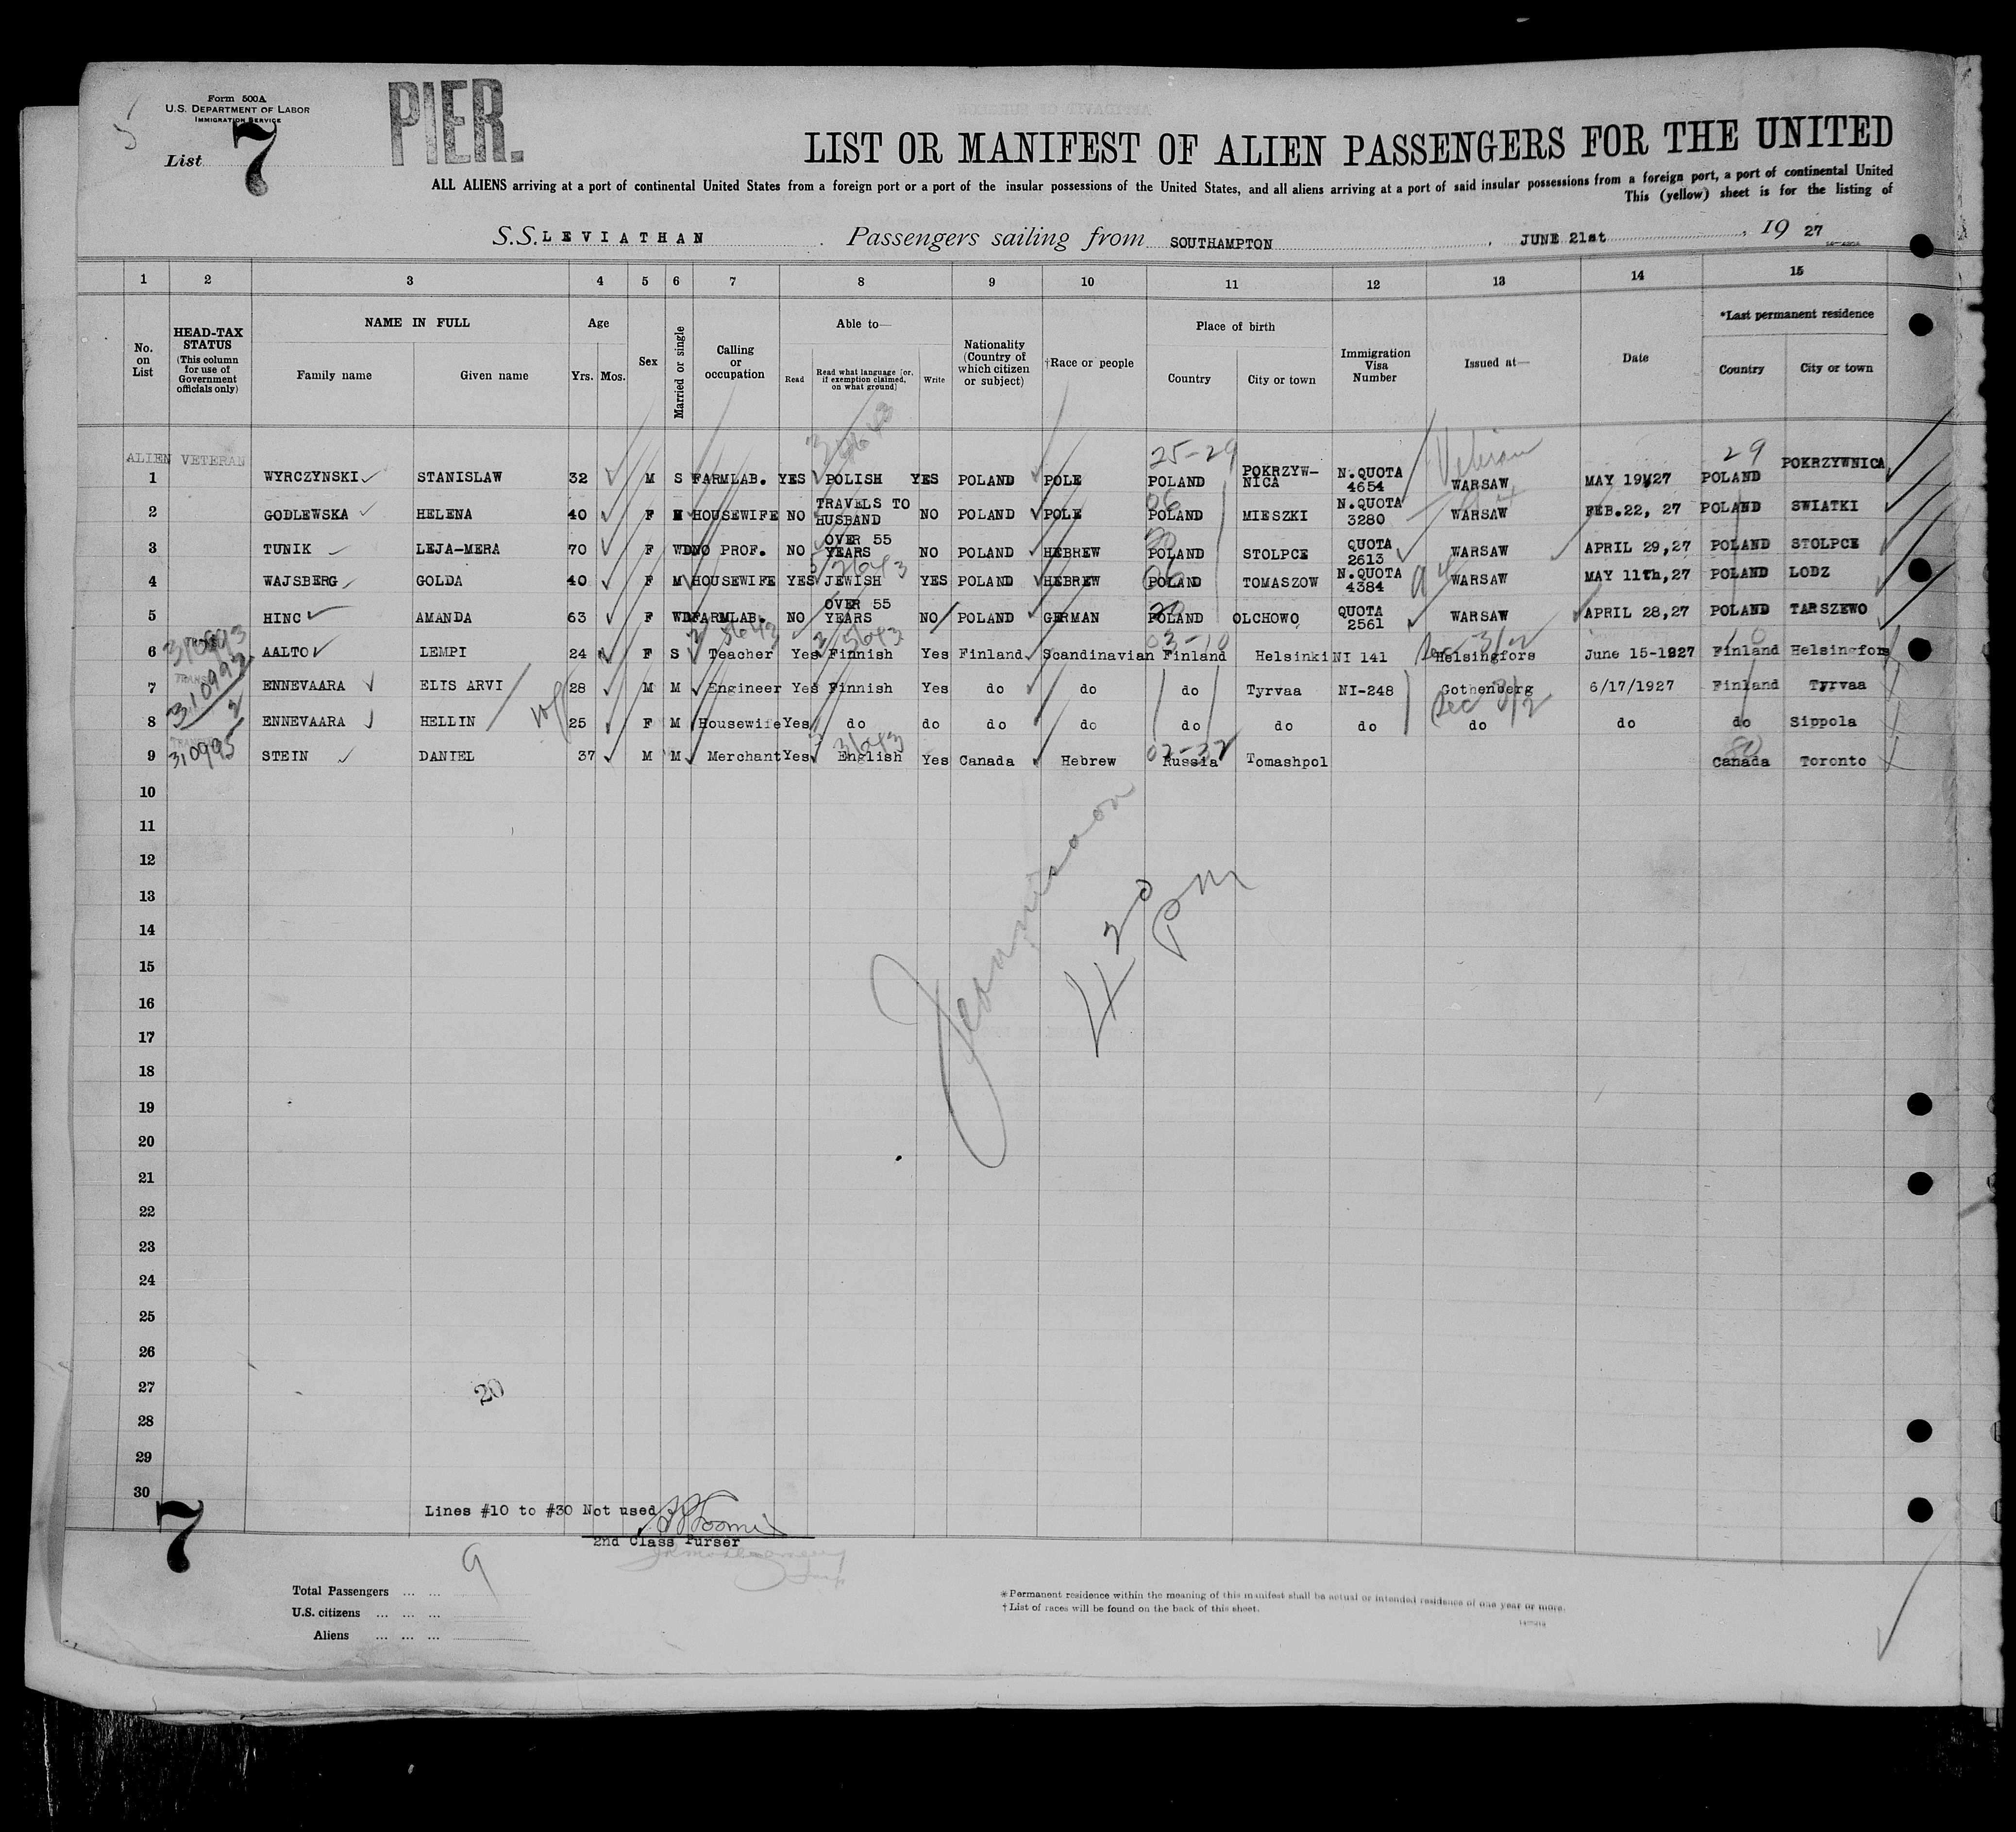 Form 500A
U.S. DEPARTMENT OF LABOR
IMMIGRATION SERVICE
List 7
PIER.
LIST OR MANIFEST OF ALIEN PASSENGERS FOR THE UNITED
ALL ALIENS arriving at a port of continental United States from a foreign port or a port of the insular possessions of the United States, and all aliens arriving at a port of said insular possessions from a foreign port, a port of continental United
This (yellow) sheet is for the listing of
S.S. LEVIATHAN Passengers sailing from SOUTHAMPTON, JUNE 21st, 19 27
1 2 3 4 5 6 7 8 9 10 11 12 13 14 15
No. on List
HEAD-TAX STATUS (This column for use of Government officials only)
NAME IN FULL
Family name Given name
Age
Yrs. Mos.
Sex
Married or single
Calling or occupation
Able to—
Read
Read what language [or, if exemption claimed, on what ground]
Write
Nationality (Country of which citizen or subject)
†Race or people
Place of birth
Country City or town
Immigration Visa Number
Issued at—
Date
*Last permanent residence
Country City or town
ALIEN VETERAN 25-29 Veteran 29
1 WYRCZYNSKI STANISLAW 32 M S FARMLAB. YES POLISH YES POLAND POLE POLAND POKRZYW-NICA N.QUOTA 4654 WARSAW MAY 19 27 POLAND POKRZYWNICA
2 GODLEWSKA HELENA 40 F M HOUSEWIFE NO TRAVELS TO HUSBAND NO POLAND POLE POLAND MIESZKI N.QUOTA 3280 WARSAW FEB.22, 27 POLAND SWIATKI
3 TUNIK LEJA-MERA 70 F WD NO PROF. NO OVER 55 YEARS NO POLAND HEBREW POLAND STOLPCE QUOTA 2613 WARSAW APRIL 29,27 POLAND STOLPCE
4 WAJSBERG GOLDA 40 F M HOUSEWIFE YES JEWISH YES POLAND HEBREW POLAND TOMASZOW N.QUOTA 4384 WARSAW MAY 11th,27 POLAND LODZ
5 HINC AMANDA 63 F WD FARMLAB. NO OVER 55 YEARS NO POLAND GERMAN POLAND OLCHOWO QUOTA 2561 WARSAW APRIL 28,27 POLAND TARSZEWO
6 AALTO LEMPI 24 F S Teacher Yes Finnish Yes Finland Scandinavian Finland Helsinki NI 141 Helsingfors June 15-1927 Finland Helsingfors
7 ENNEVAARA ELIS ARVI 28 M M Engineer Yes Finnish Yes do do do Tyrvaa NI-248 Gothenberg 6/17/1927 Finland Tyrvaa
8 ENNEVAARA HELLIN 25 F M Housewife Yes do do do do do do do do do do Sippola
310995
9 STEIN DANIEL 37 M M Merchant Yes English Yes Canada Hebrew Russia Tomashpol Canada Toronto
10
11
12
13
14
15
16
17
18
19
20
21
22
23
24
25
26
27
28
29
30
4 20 PM
20
Lines #10 to #30 Not used
2nd Class Purser
7
Total Passengers ... ... 9
U.S. citizens ... ... ...
Aliens ... ... ...
*Permanent residence within the meaning of this manifest shall be actual or intended residence of one year or more.
†List of races will be found on the back of this sheet.